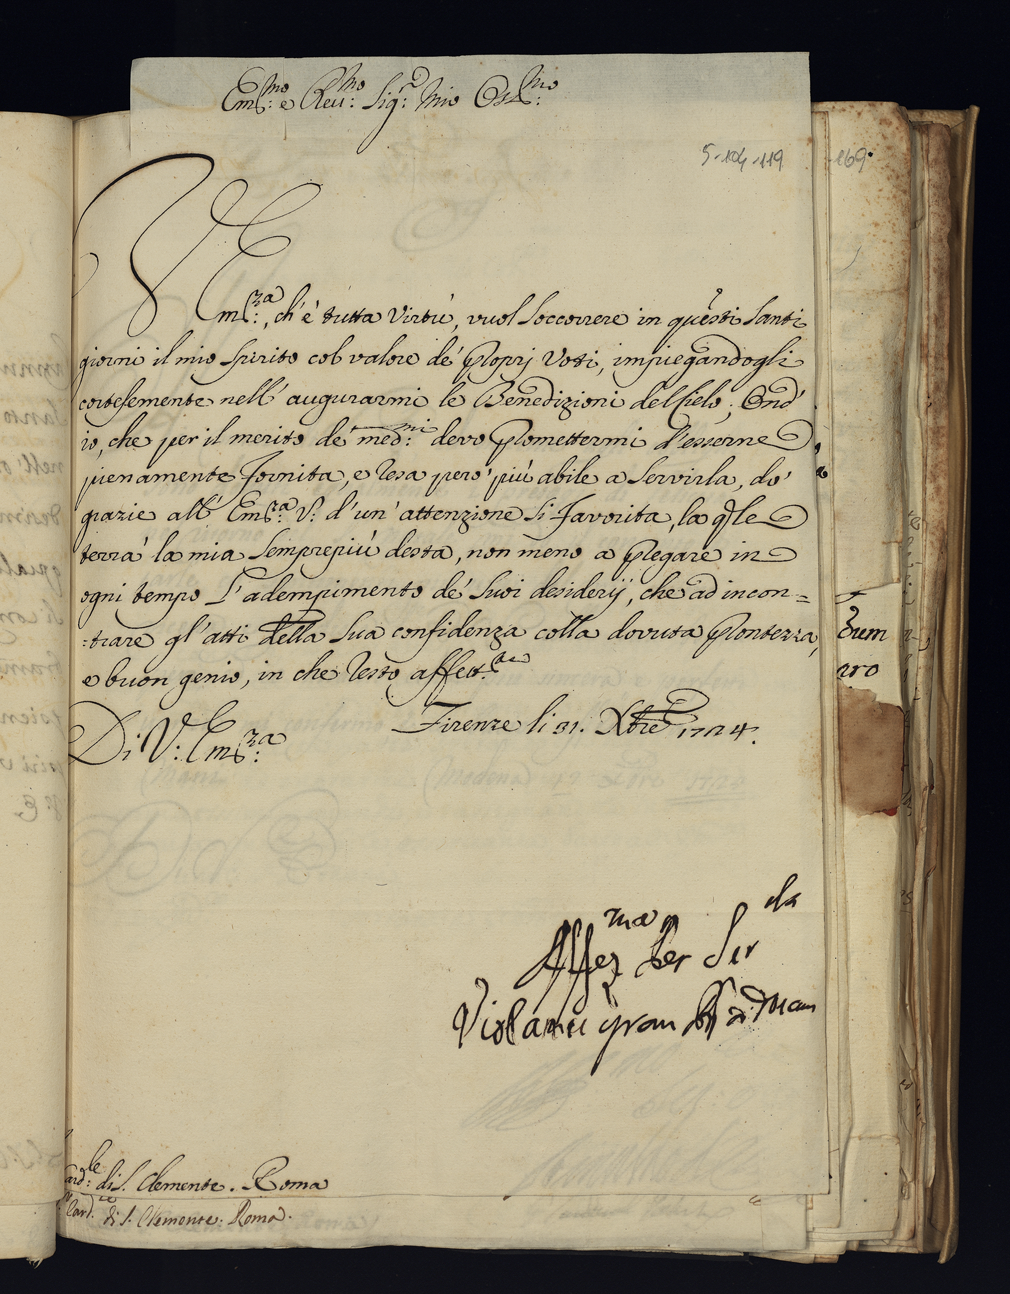 Em:mo e Reu:mo Sig:r Mio Oss:mo
5-104-119
169.
V Em:za, ch'è tutta Virtù, vuol soccorrere in questi Santi
giorni il mio spirito col valore de' proprj Voti, impiegandogli
cortesemente nell' augurarmi le Benedizioni del Cielo; Ond'
io, che per il merito de' med:mi devo promettermi d'esserne
pienamente fornita, e resa però più abile a servirla, dò
grazie all' Em:za V: d'un' attenzione sì favorita, la qle
terrà la mia semprepiù desta, non meno a pregare in
ogni tempo l'adempimento de' suoi desiderij, che ad incon=
=trare gl'atti della sua confidenza colla dovuta prontezza,
e buon genio, in che resto affett:te
Di V: Em:za
Firenze li 31. Xbre 1724.
Affez:ma per Ser
Violante gran
ard:le di S. Clemente. Roma
Card.le di S. Clemente. Roma.